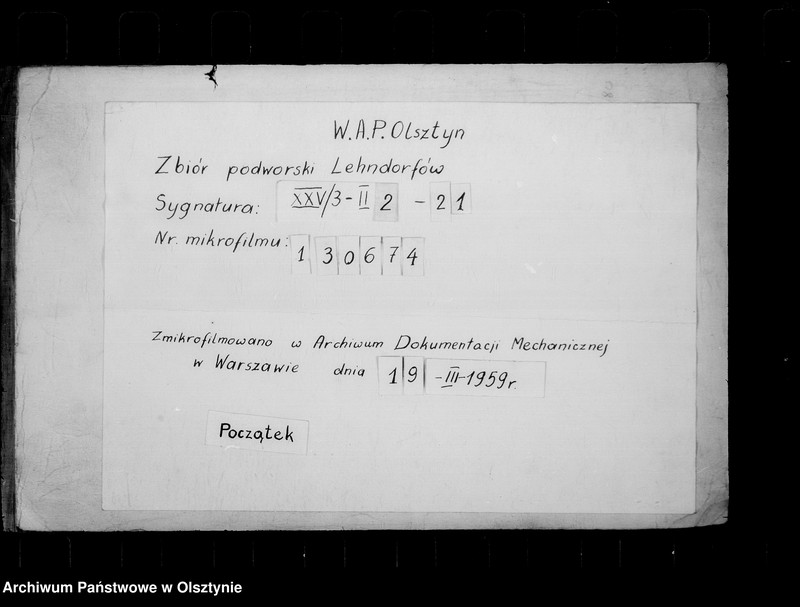 W.A.P. Olsztyn
Zbiór podworski Lehndorfów
Sygnatura: XXV/3 - II 2 - 21
Nr. mikrofilmu: 130674
Zmikrofilmowano w Archiwum Dokumentacji Mechanicznej
w Warszawie dnia 19 - III - 1959 r.
Początek
Archiwum Państwowe w Olsztynie